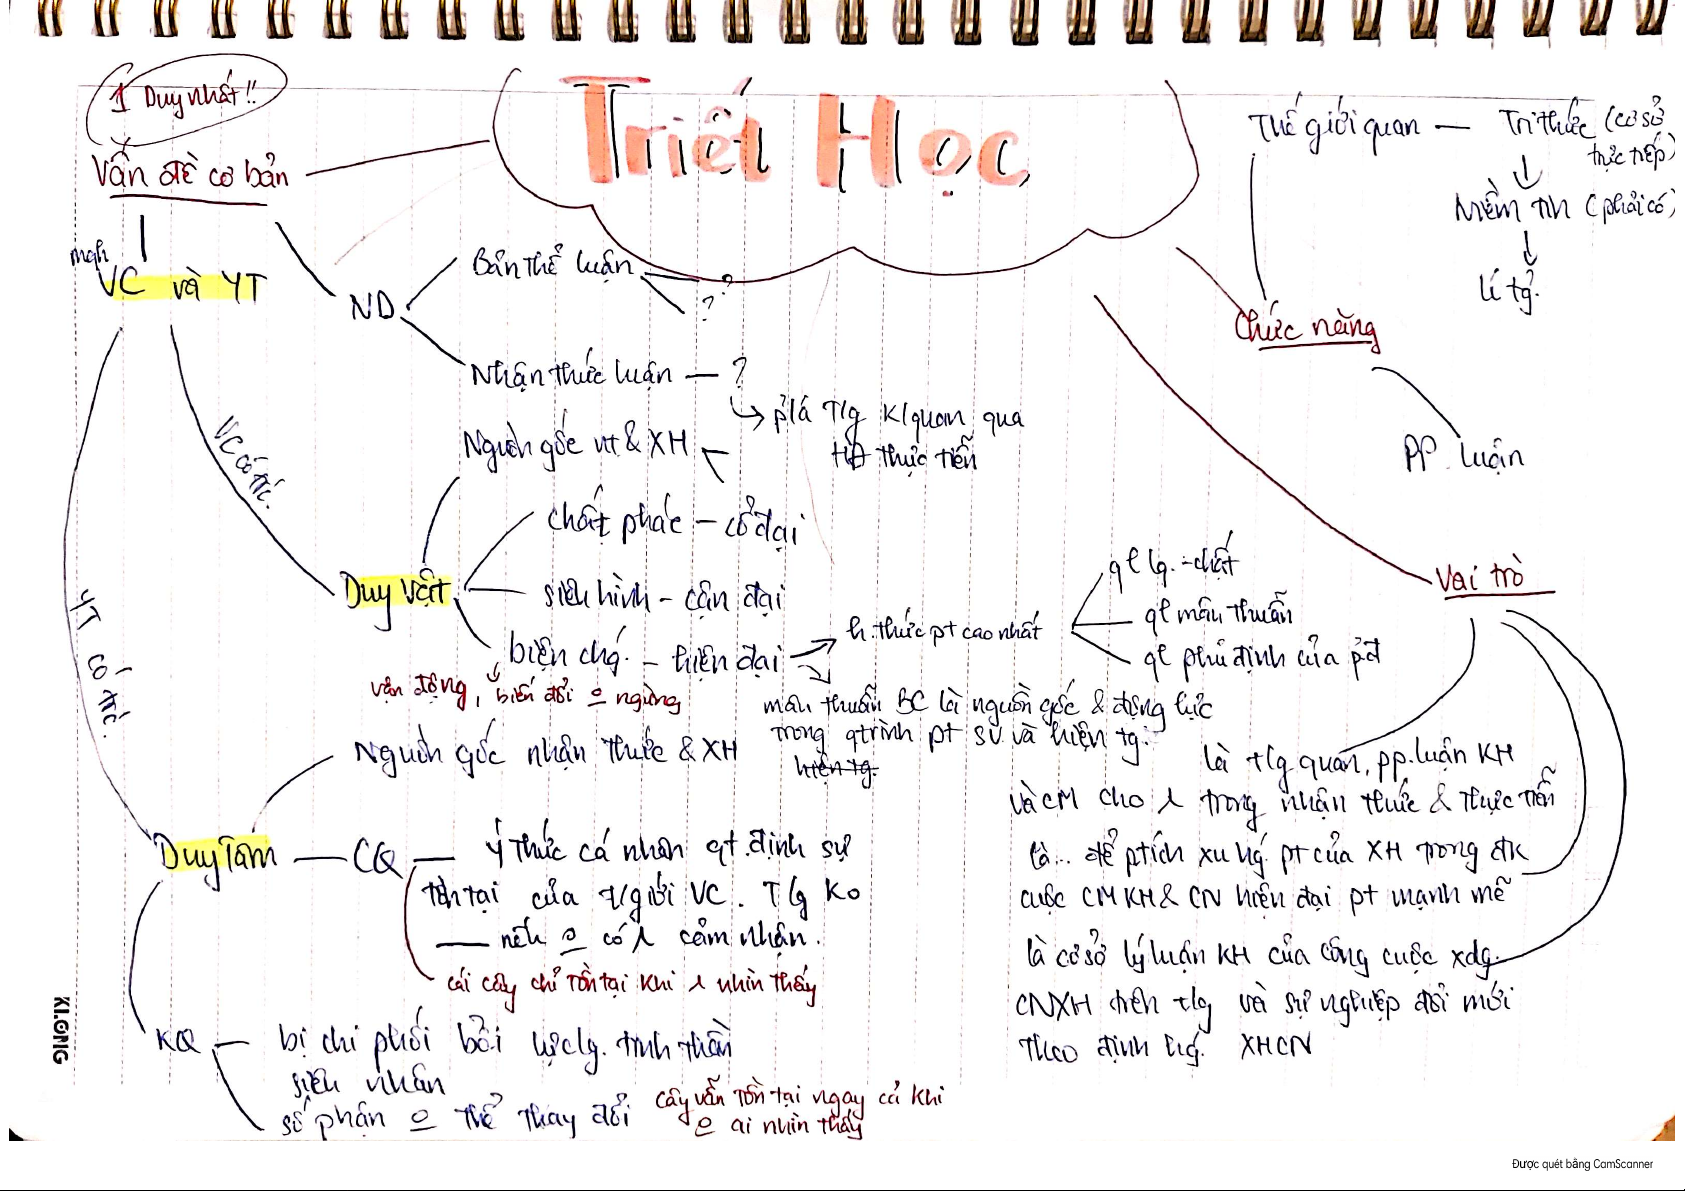 1 Duy nhất!!
Triết Học
Vấn đề cơ bản
mqh
VC và YT
ND
Bản thể luận
?
?
Nhận thức luận — ?
p/á T/g K/quan qua
HĐ thực tiễn
Thế giới quan — Tri thức (cơ sở
trực tiếp)
Niềm tin (phải có)
lí tg̉.
Chức năng
PP. luận
VC có trc.
YT có trc.
Nguồn gốc nt & XH
chất phác – cổ đại
Duy vật
siêu hình – cận đại
biện chg. – hiện đại
vận động, biến đổi o ngừng
h.thức pt cao nhất
ql lg. - chất
ql mâu thuẫn
ql phủ định của p.đ
mâu thuẫn BC là nguồn gốc & động lực
trong qtrình pt sv và hiện tg.
hiện tg.
Vai trò
là t/g quan, pp.luận KH
và CM cho λ trong nhận thức & thực tiễn
là .. để ptích xu hg. pt của XH trong đk
cuộc CM KH & CN hiện đại pt mạnh mẽ
là cơ sở lý luận KH của công cuộc xdg.
CNXH trên t/g và sự nghiệp đổi mới
theo định hg. XHCN
Nguồn gốc nhận thức & XH
Duy Tâm — CQ — ý thức cá nhân qt.định sự
tồn tại của t/giới VC. T/g Ko
— nếu o có λ cảm nhận.
cái cây chỉ tồn tại khi λ nhìn thấy
KQ — bị chi phối bởi lực lg. tinh thần
siêu nhân
số phận o thể thay đổi
cây vẫn tồn tại ngay cả khi
o ai nhìn thấy
KLONG
Được quét bằng CamScanner